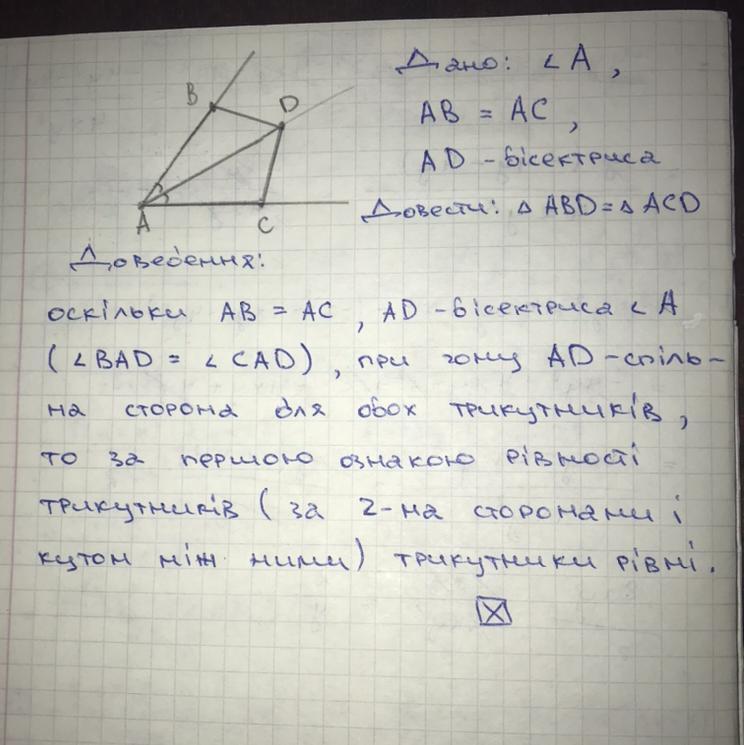 B
D
A
C
Дано: ∠A,
AB = AC,
AD - бісектриса
Довести: △ ABD = △ ACD
Доведення:
оскільки AB = AC, AD - бісектриса ∠A
(∠BAD = ∠CAD), при чому AD - спіль-
на сторона для обох трикутників,
то за першою ознакою рівності
трикутників (за 2-на сторонами і
кутом між ними) трикутники рівні.